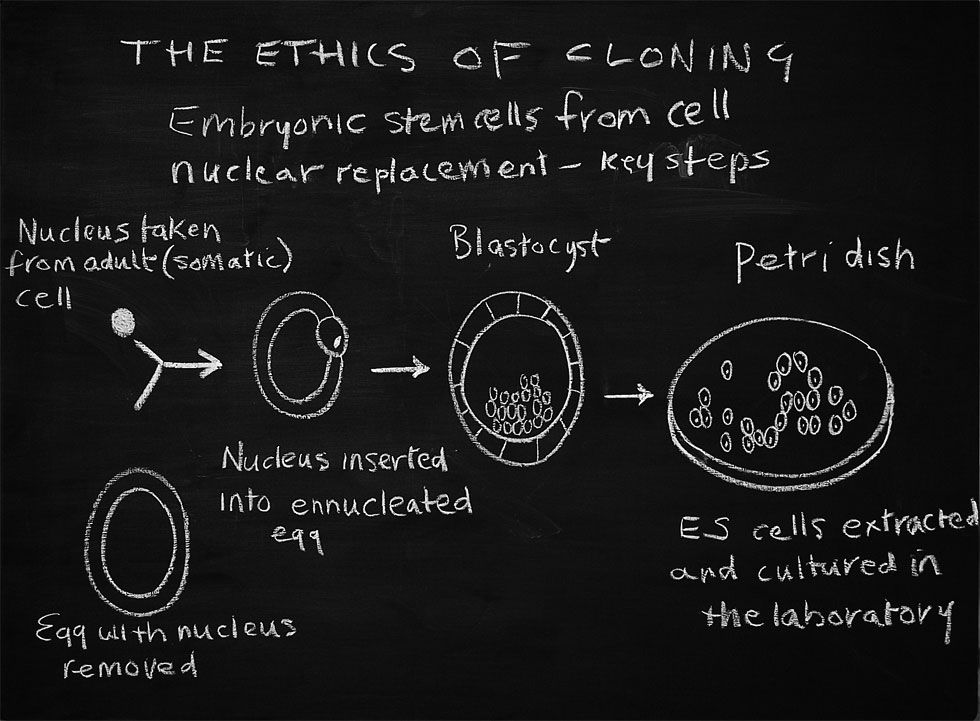 THE ETHICS OF CLONING
Embryonic stem cells from cell
nuclear replacement – key steps
Nucleus taken
from adult (somatic)
cell
Blastocyst
Petri dish
Nucleus inserted
into ennucleated
egg
Egg with nucleus
removed
ES cells extracted
and cultured in
the laboratory